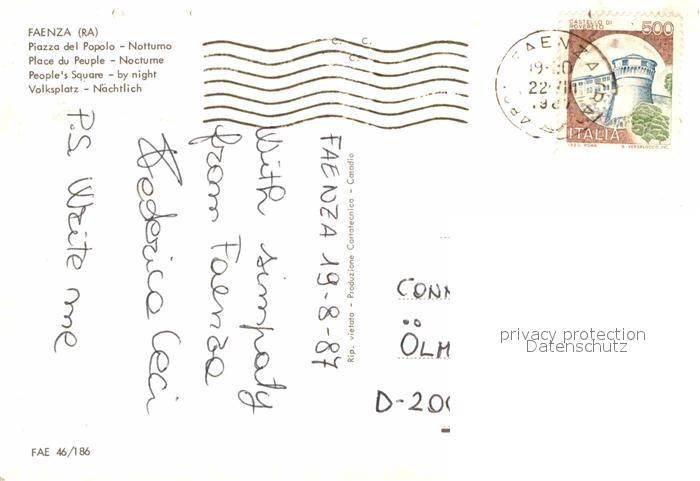 FAENZA (RA)
Piazza del Popolo - Notturno
Place du Peuple - Nocturne
People's Square - by night
Volksplatz - Nächtlich
C. C.
C. C.
FAENZA
19-20
22.VIII
CASTELLO DI
ROVERETO
500
ITALIA
I.P.Z.S. ROMA
E. VERSELOCCO INC.
FAENZA 19-8-87
With simpaty
from Faenza
Federica Ceci
P.S. Write me
Rip. vietata - Produzione Cartotecnica - Casadio
CONN
ÖLM
D-200
privacy protection
Datenschutz
FAE 46/186